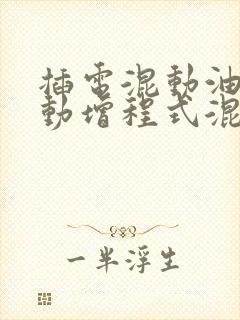 插電混動油
動增程式混
一半浮生